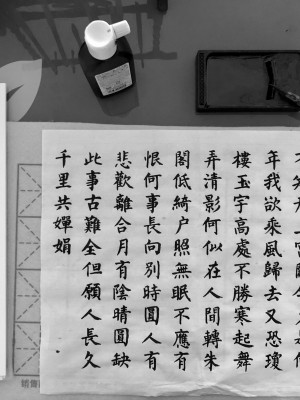 年我欲乘風歸去又恐瓊
樓玉宇高處不勝寒起舞
弄清影何似在人間轉朱
閣低綺户照無眠不應有
恨何事長向别時圓人有
悲歡離合月有陰晴圓缺
此事古難全但願人長久
千里共嬋娟